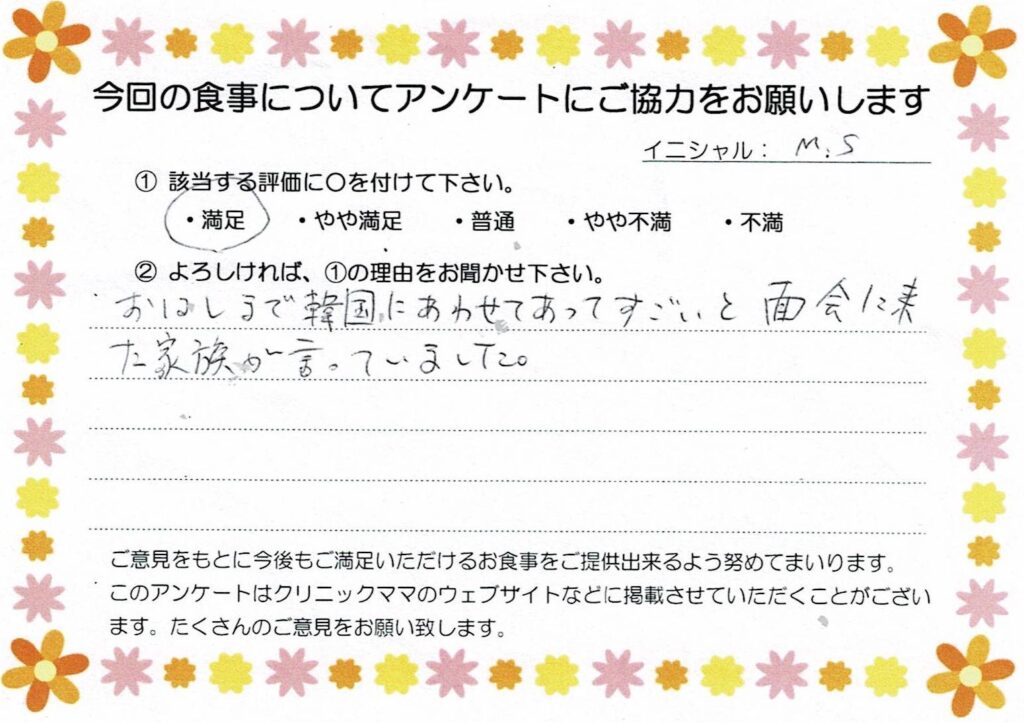 今回の食事についてアンケートにご協力をお願いします
イニシャル： M.S
① 該当する評価に〇を付けて下さい。
・満足 ・やや満足 ・普通 ・やや不満 ・不満
② よろしければ、①の理由をお聞かせ下さい。
おはしまで韓国にあわせてあってすごいと面会に来
た家族が言っていました。
ご意見をもとに今後もご満足いただけるお食事をご提供出来るよう努めてまいります。
このアンケートはクリニックママのウェブサイトなどに掲載させていただくことがござい
ます。たくさんのご意見をお願い致します。